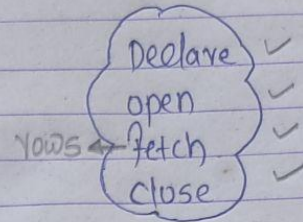 Declare ✓
open ✓
rows ← fetch ✓
close ✓